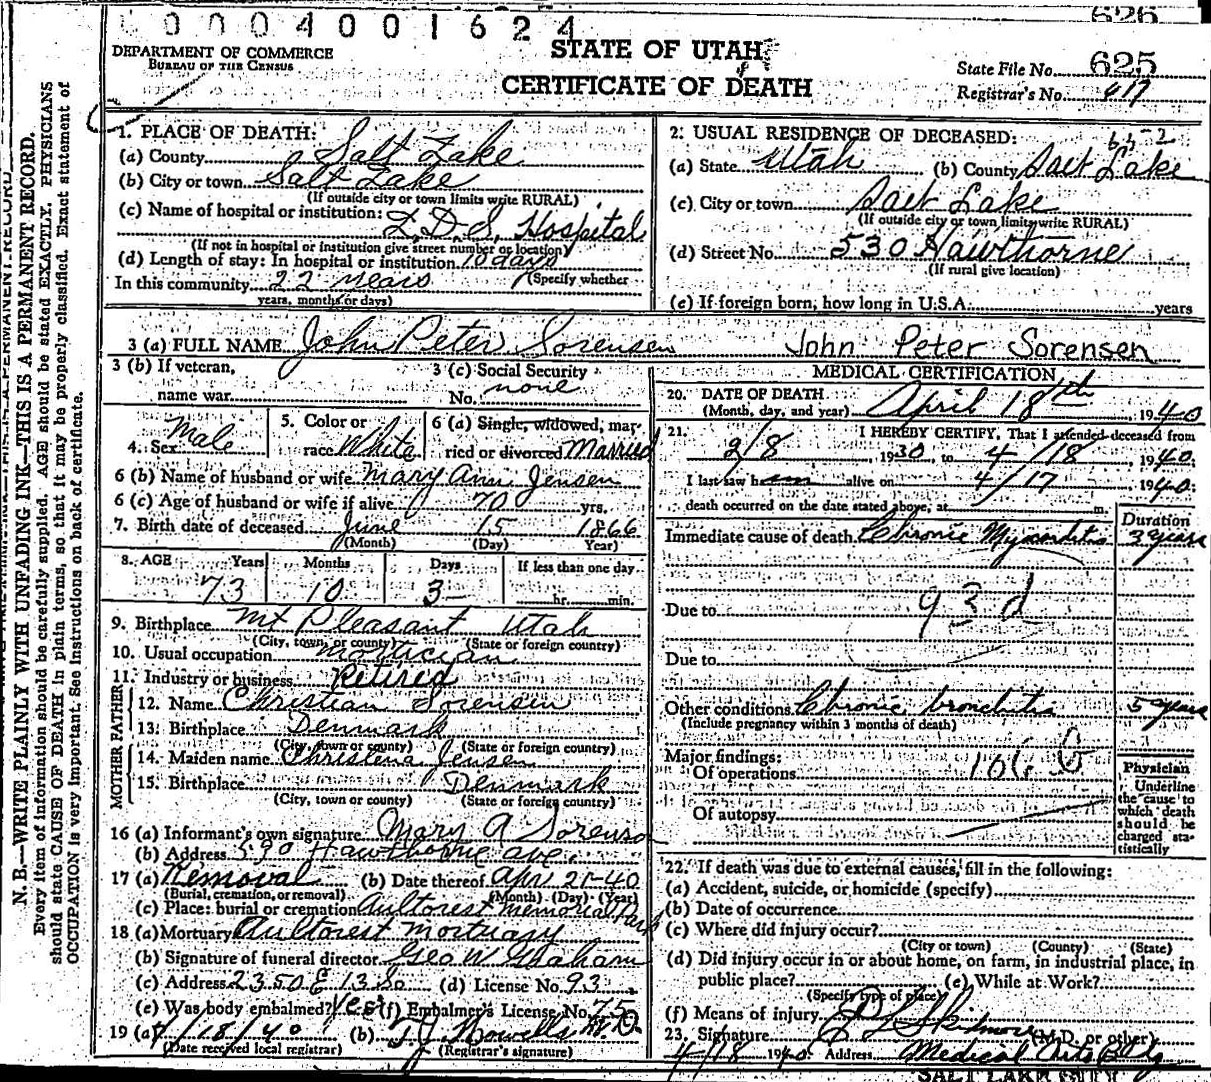 0 0 0 4 0 0 1 6 2 4
626
DEPARTMENT OF COMMERCE
BUREAU OF THE CENSUS
STATE OF UTAH
CERTIFICATE OF DEATH
State File No. 625
Registrar's No. 417
N. B.—WRITE PLAINLY WITH UNFADING INK—THIS IS A PERMANENT RECORD.
Every item of information should be carefully supplied. AGE should be stated EXACTLY. PHYSICIANS
should state CAUSE OF DEATH in plain terms, so that it may be properly classified. Exact statement of
OCCUPATION is very important. See Instructions on back of certificate.
1. PLACE OF DEATH:
(a) County Salt Lake
(b) City or town Salt Lake
(If outside city or town limits write RURAL)
(c) Name of hospital or institution:
L. D. S. Hospital
(If not in hospital or institution give street number or location)
(d) Length of stay: In hospital or institution 10 days
(Specify whether
In this community 22 years
years, months or days)
2. USUAL RESIDENCE OF DECEASED:
(a) State Utah (b) County Salt Lake
(c) City or town Salt Lake
(If outside city or town limit, write RURAL)
(d) Street No. 530 Hawthorne
(If rural give location)
(e) If foreign born, how long in U.S.A. years
3 (a) FULL NAME John Peter Sorensen John Peter Sorensen
3 (b) If veteran,
name war
3 (c) Social Security
No. none
4. Sex Male
5. Color or
race White
6 (a) Single, widowed, mar-
ried or divorced Married
6 (b) Name of husband or wife Mary Ann Jensen
6 (c) Age of husband or wife if alive 70 yrs.
7. Birth date of deceased June 15 1866
(Month) (Day) Year)
8. AGE Years Months Days If less than one day
73 10 3 hr. min.
9. Birthplace Mt Pleasant Utah
(City, town, or county) (State or foreign country)
10. Usual occupation mortician
11. Industry or business Retired
FATHER
12. Name Christian Sorensen
13. Birthplace Denmark
(City, town or county) (State or foreign country)
MOTHER
14. Maiden name Christena Jensen
15. Birthplace Denmark
(City, town or county) (State or foreign country)
16 (a) Informant's own signature Mary A Sorenson
(b) Address 530 Hawthorne ave.
17 (a) Removal (b) Date thereof Apr 21-40
(Burial, cremation, or removal) (Month) (Day) (Year)
(c) Place: burial or cremation Aultorest Memorial Park
18 (a) Mortuary Aultorest Mortuary
(b) Signature of funeral director Geo W. Graham
(c) Address 2350 E 13 So (d) License No. 93
(e) Was body embalmed? Yes (f) Embalmer's License No. 75
19 (a) 4/18/40 (b) T J Howells M.D.
(Date received local registrar) (Registrar's signature)
MEDICAL CERTIFICATION
20. DATE OF DEATH
(Month, day, and year) April 18th 1940
21. I HEREBY CERTIFY, That I attended deceased from
2/8 1930, to 4/18 1940.
I last saw him alive on 4/17 1940.
death occurred on the date stated above, at m.
Duration
Immediate cause of death Chronic Myocarditis 3 years
Due to 93d
Due to
Other conditions Chronic bronchitis 5 years
(Include pregnancy within 3 months of death)
Major findings:
Of operations 106 b
Of autopsy
Physician
Underline
the cause to
which death
should be
charged sta-
tistically
22. If death was due to external causes, fill in the following:
(a) Accident, suicide, or homicide (specify)
(b) Date of occurrence
(c) Where did injury occur?
(City or town) (County) (State)
(d) Did injury occur in or about home, on farm, in industrial place, in
public place? (e) While at Work?
(Specify type of place)
(f) Means of injury
23. Signature Skidmore (M.D. or other)
4/18 1940 Address Medical Arts Bldg
SALT LAKE CITY